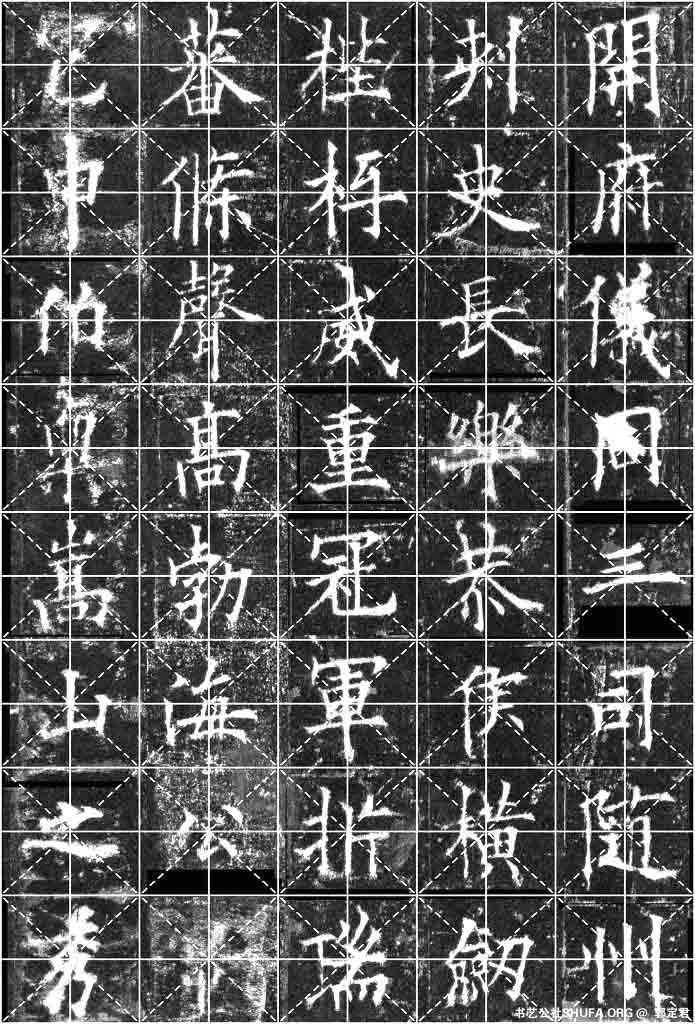 開府儀同三司隨州
刾史長樂恭侯橫劒
梐枑威重冠軍析瑞
蕃條聲高渤海公
包申伯稟嵩山之秀
书艺公社SHUFA.ORG @ 郭定君